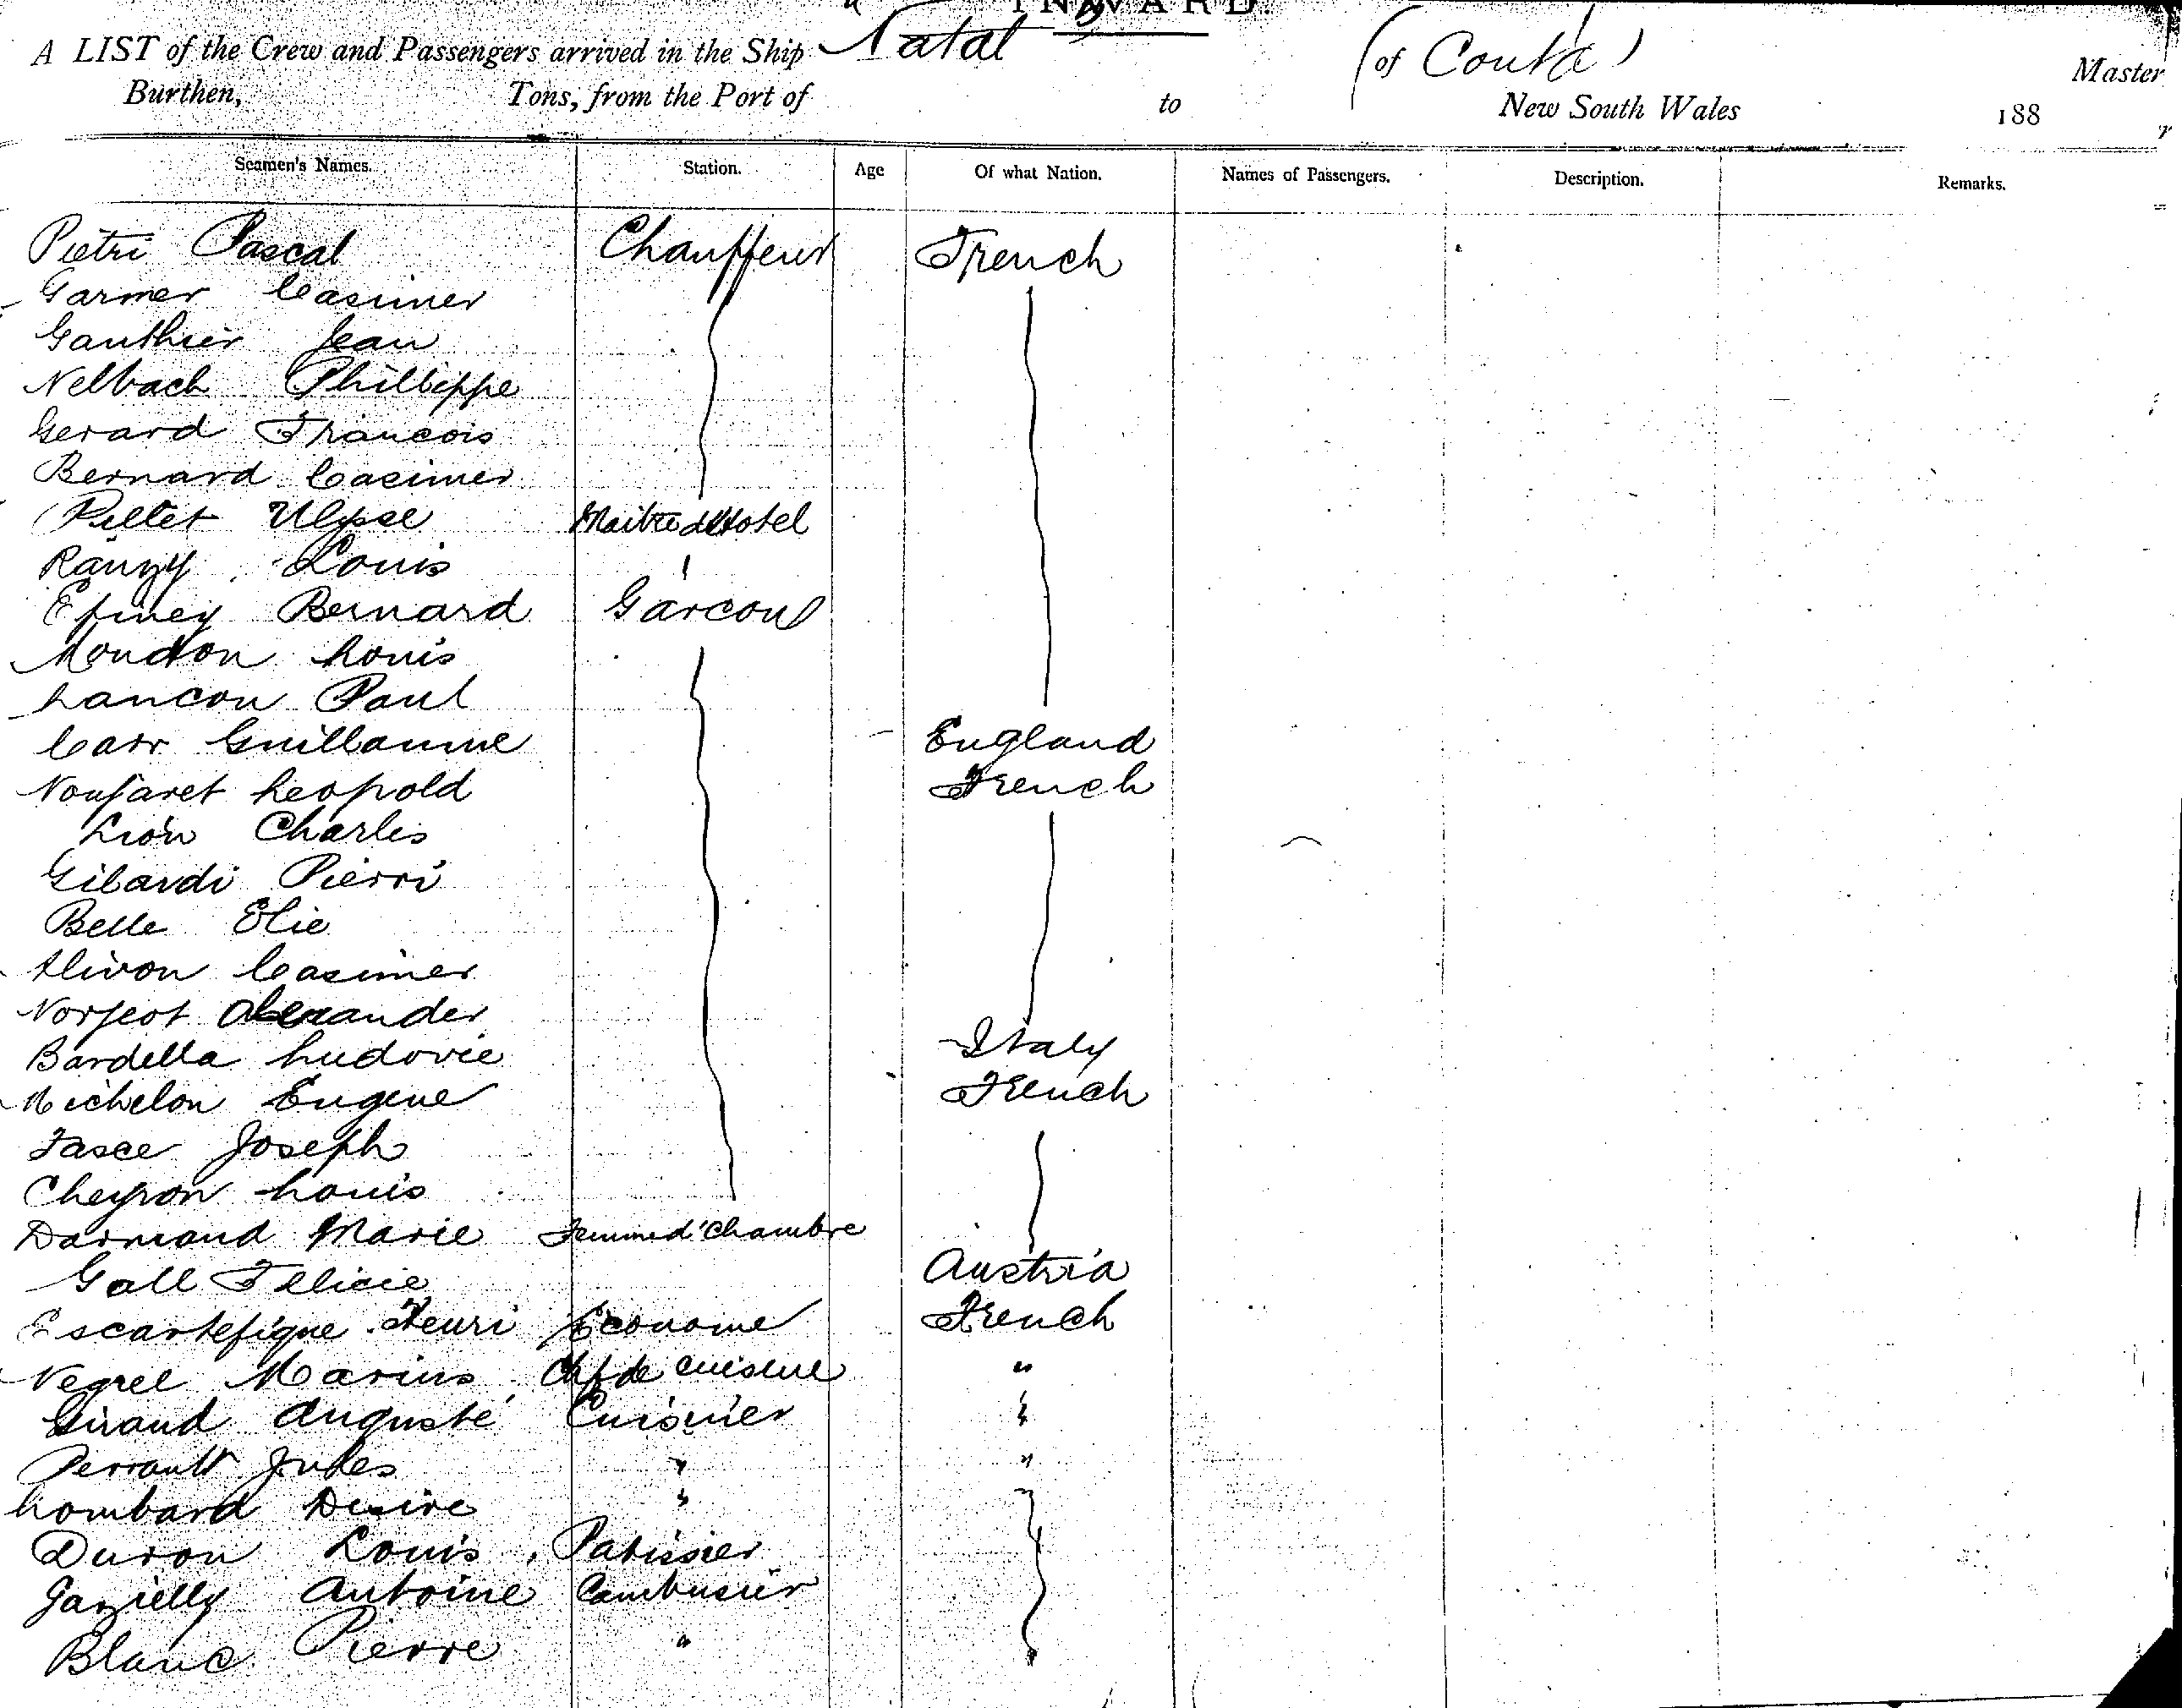 INWARD.
A LIST of the Crew and Passengers arrived in the Ship Natal (of Conta) Master
Burthen, Tons, from the Port of to New South Wales 188
Seamen's Names. Station. Age Of what Nation. Names of Passengers. Description. Remarks.
Pietri Pascal Chauffeur French
Garmer Casimer
Gauthier Jean
Nelbach Phillippe
Gerard Francois
Bernard Casimer
Pellet Ulysse Maitre d'Hotel
Rauzy Louis
Epiney Bernard Garcon
Moudon Louis
Lancon Paul
Carr Guillaume England
Noufaret Leopold French
Lion Charles
Gilardi Pierri
Belle Elie
Alivon Casimer
Norjeot Alexander
Bardella Ludovic Italy
Michelon Eugene French
Fasce Joseph
Cheyron Louis
Darmand Marie Femme d'Chambre
Gall Felicie Austria
Escartefigue Henri Econome French
Negrel Marius Chf de Cuisine "
Giraud Auguste Cuisinier "
Perrault Jules " "
Lombard Desire "
Duron Louis Patissier
Gazielly Antoine Cambusier
Blanc Pierre " "